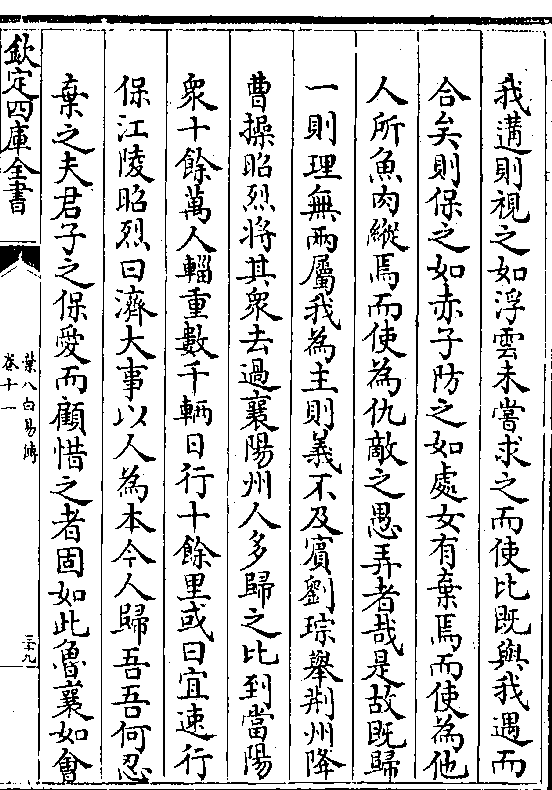 我遘則視之如浮雲未嘗求之而使比既與我遇而
合矣則保之如赤子防之如處女有棄焉而使為他
人所魚肉縱焉而使為仇敵之愚弄者哉是故既歸
一則理無兩屬我為主則義不及賓劉琮舉荆州降
曹操昭烈將其衆去過襄陽州人多歸之比到當陽
衆十餘萬人輜重數千輛日行十餘里或曰宜速行
保江陵昭烈曰濟大事以人為本今人歸吾吾何忍
棄之夫君子之保愛而顧惜之者固如此魯襄如會
欽定四庫全書
葉八白易傳
卷十一
三十九